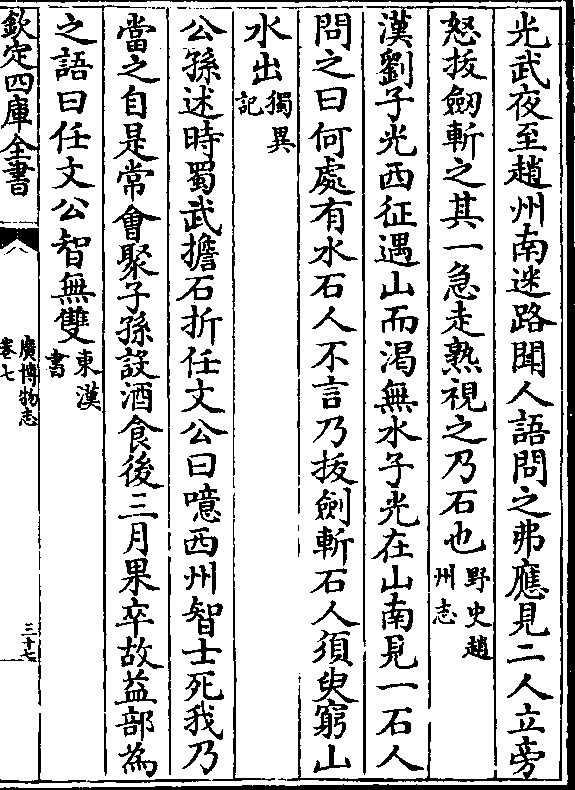 光武夜至趙州南迷路聞人語問之弗應見二人立旁
怒拔劔斬之其一急走熟視之乃石也野史趙州志
漢劉子光西征遇山而渴無水子光在山南見一石人
問之曰何處有水石人不言乃拔劍斬石人須臾窮山
水出獨異記
公孫述時蜀武擔石折任文公曰噫西州智士死我乃
當之自是常會聚子孫設酒食後三月果卒故益部為
之語曰任文公智無雙東漢書
欽定四庫全書
廣博物志
卷七
三十七